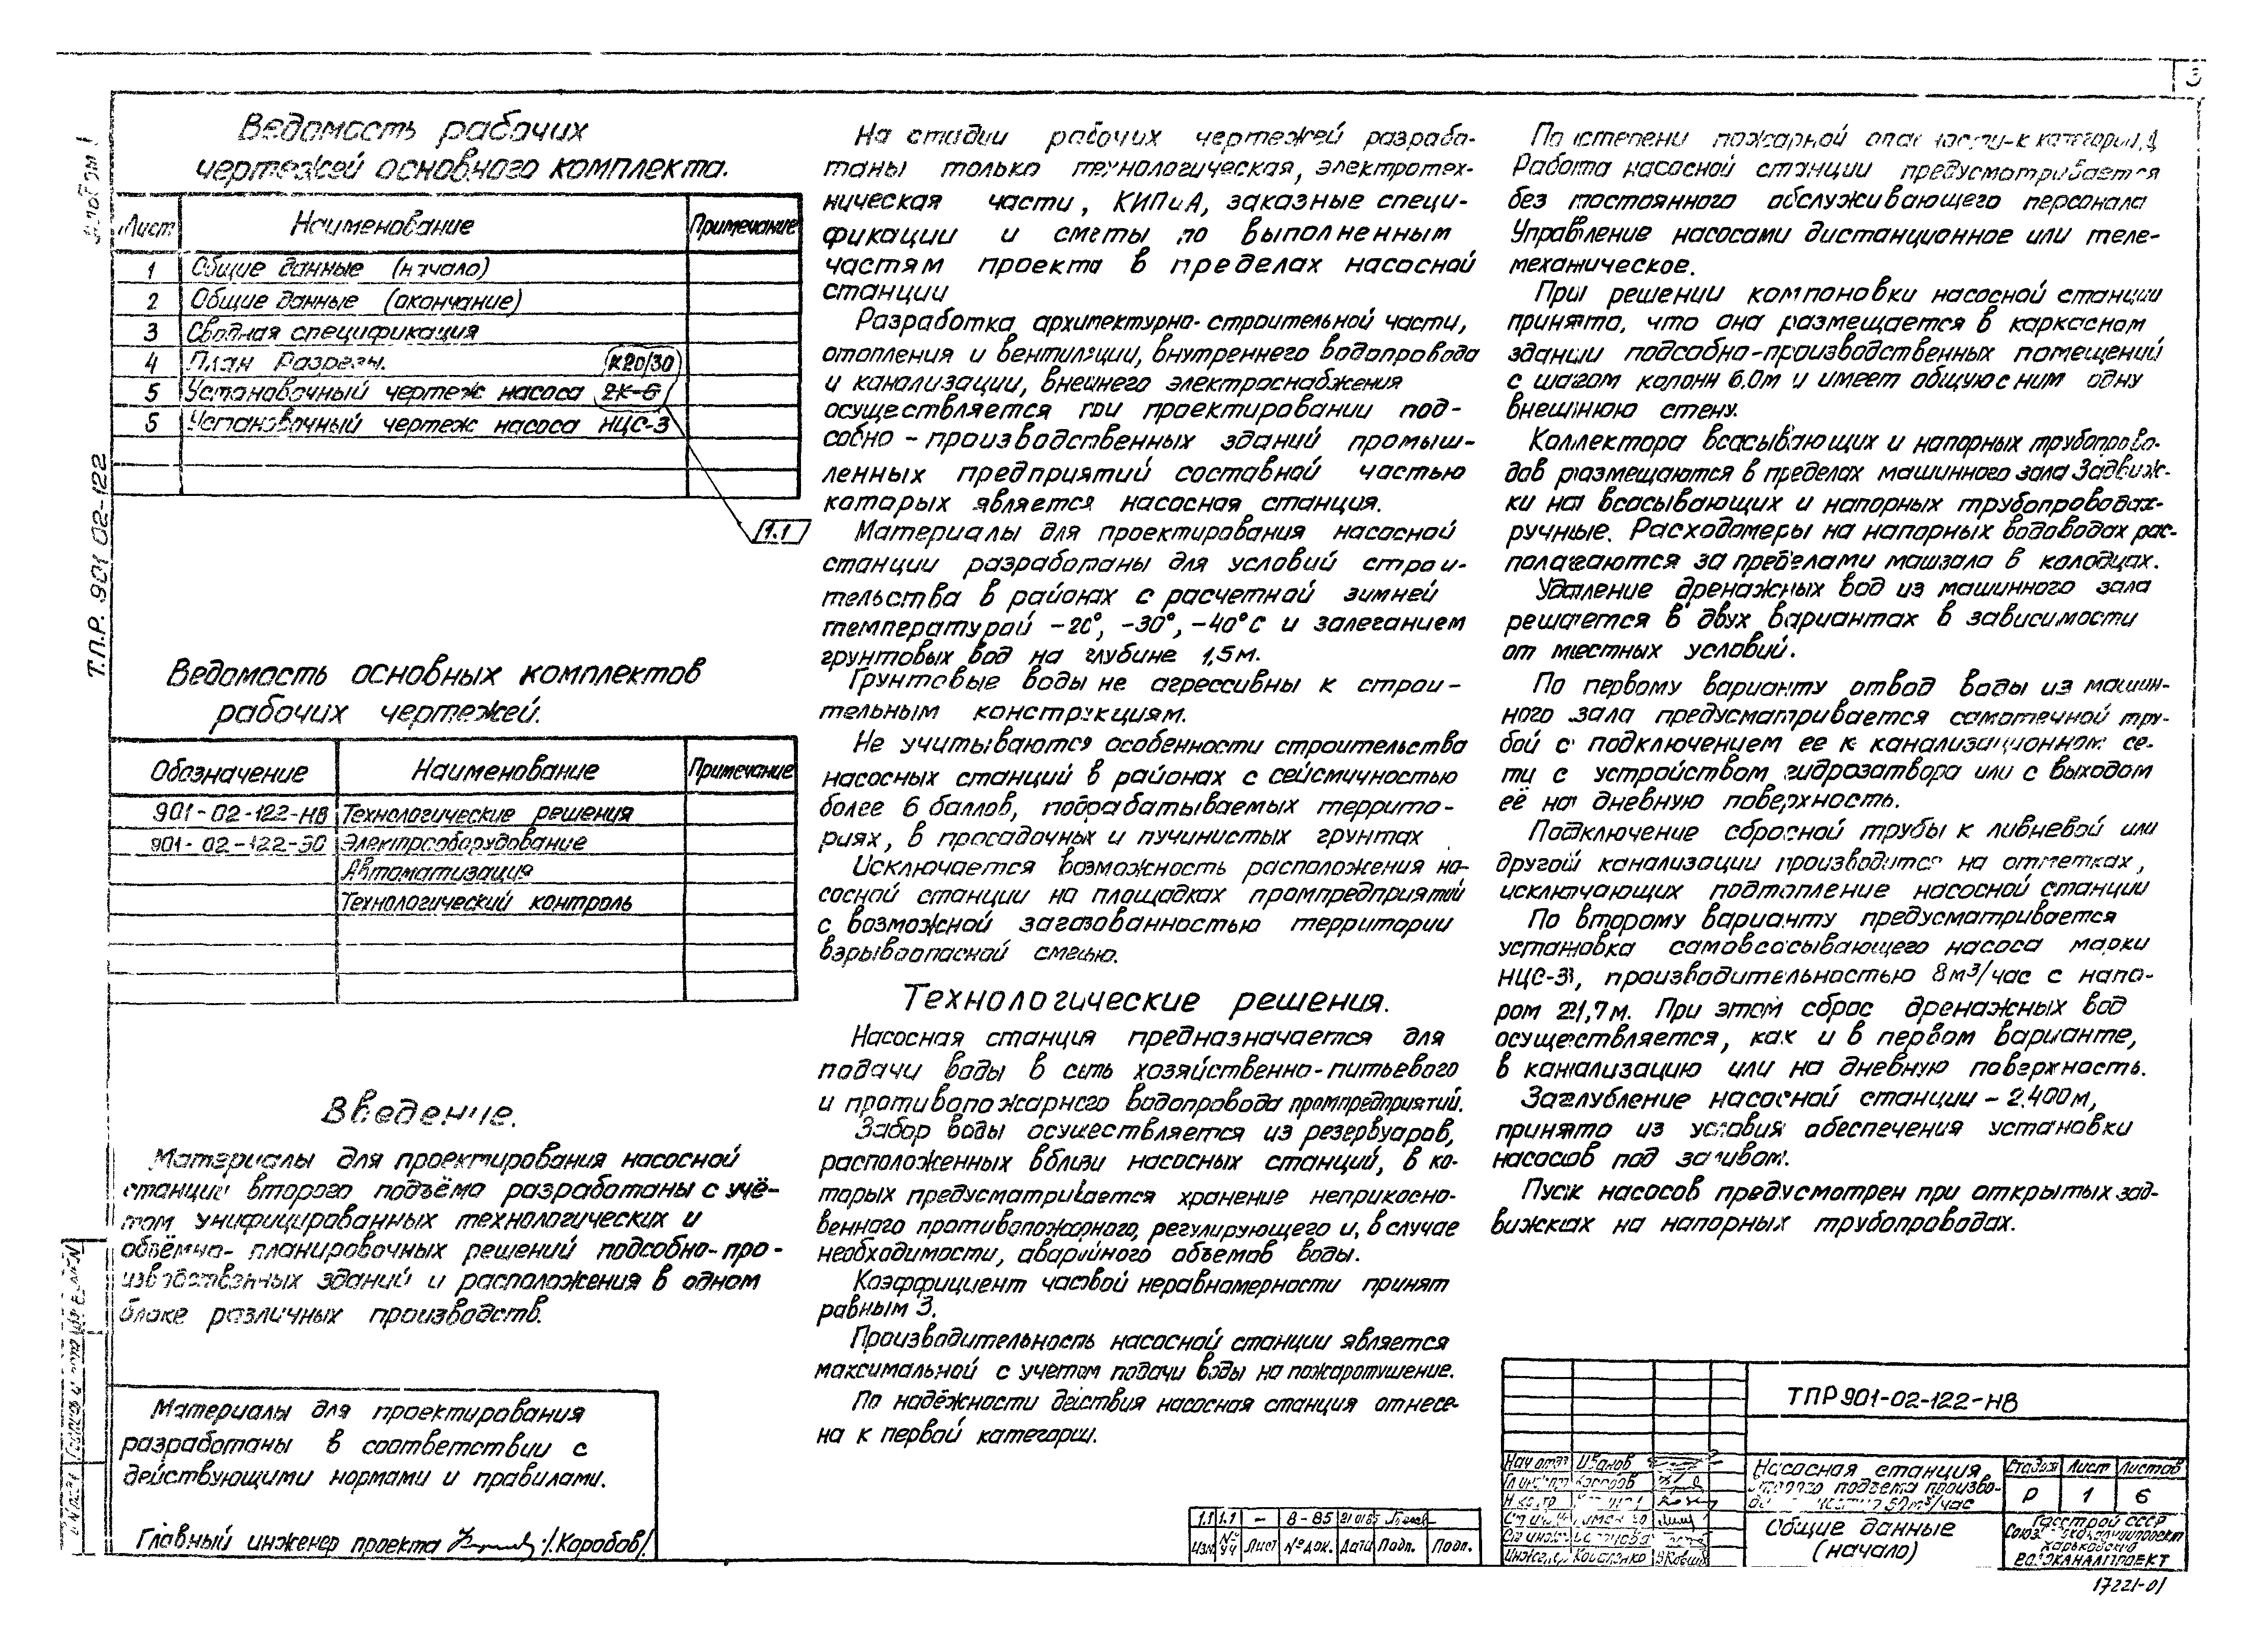 3
Альбом I
Т.П.Р. 901 02-122
Ведомость рабочих
чертежей основного комплекта.
Лист Наименование Примечание
1 Общие данные (начало)
2 Общие данные (окончание)
3 Сводная спецификация
4 План Разрезы.
К20/30
5 Установочный чертеж насоса 2К-6
5 Установочный чертеж насоса НЦС-3
1.1
Ведомость основных комплектов
рабочих чертежей.
Обозначение Наименование Примечание
901-02-122-НВ Технологические решения
901-02-122-ЭО Электрооборудование
Автоматизация
Технологический контроль
Введение.
Материалы для проектирования насосной
станции второго подъёма разработаны с учё-
том унифицированных технологических и
объёмно-планировочных решений подсобно-про-
изводственных зданий и расположения в одном
блоке различных производств.
Материалы для проектирования
разработаны в соответствии с
действующими нормами и правилами.
Главный инженер проекта /Коробов/
На стадии рабочих чертежей разрабо-
таны только технологическая, электротех-
ническая части, КИПиА, заказные специ-
фикации и сметы по выполненным
частям проекта в пределах насосной
станции
Разработка архитектурно-строительной части,
отопления и вентиляции, внутреннего водопровода
и канализации, внешнего электроснабжения
осуществляется при проектировании под-
собно-производственных зданий промыш-
ленных предприятий составной частью
которых является насосная станция.
Материалы для проектирования насосной
станции разработаны для условий строи-
тельства в районах с расчетной зимней
температурой -20°, -30°, -40°С и залеганием
грунтовых вод на глубине 1,5м.
Грунтовые воды не агрессивны к строи-
тельным конструкциям.
Не учитываются особенности строительства
насосных станций в районах с сейсмичностью
более 6 баллов, подрабатываемых террито-
риях, в просадочных и пучинистых грунтах
Исключается возможность расположения на-
сосной станции на площадках промпредприятий
с возможной загазованностью территории
взрывоопасной смесью.
Технологические решения.
Насосная станция предназначается для
подачи воды в сеть хозяйственно-питьевого
и противопожарного водопровода промпредприятий.
Забор воды осуществляется из резервуаров,
расположенных вблизи насосных станций, в ко-
торых предусматривается хранение неприкосно-
венного противопожарного, регулирующего и, в случае
необходимости, аварийного объемов воды.
Коэффициент часовой неравномерности принят
равным 3.
Производительность насосной станции является
максимальной с учетом подачи воды на пожаротушение.
По надёжности действия насосная станция отнесе-
на к первой категории.
По степени пожарной опасности-к категории Д
Работа насосной станции предусматривается
без постоянного обслуживающего персонала
Управление насосами дистанционное или теле-
механическое.
При решении компоновки насосной станции
принято, что она размещается в каркасном
здании подсобно-производственных помещений
с шагом колонн 6.0м и имеет общую с ним одну
внешнюю стену.
Коллектора всасывающих и напорных трубопрово-
дов размещаются в пределах машинного зала Задвиж-
ки на всасывающих и напорных трубопроводах-
ручные. Расходомеры на напорных водоводах рас-
полагаются за пределами машзала в колодцах.
Удаление дренажных вод из машинного зала
решается в двух вариантах в зависимости
от местных условий.
По первому варианту отвод воды из машин-
ного зала предусматривается самотечной тру-
бой с подключением ее к канализационной се-
ти с устройством гидрозатвора или с выходом
её на дневную поверхность.
Подключение сбросной трубы к ливневой или
другой канализации производится на отметках,
исключающих подтопление насосной станции
По второму варианту предусматривается
установка самовсасывающего насоса марки
НЦС-3, производительностью 8м³/час с напо-
ром 21,7м. При этом сброс дренажных вод
осуществляется, как и в первом варианте,
в канализацию или на дневную поверхность.
Заглубление насосной станции - 2.400м,
принято из условия обеспечения установки
насосов под заливом.
Пуск насосов предусмотрен при открытых зад-
вижках на напорных трубопроводах.
1.1 1.1 - 8-85
Изм № уч Лист № док. Дата Подп. Подп.
ТПР 901-02-122-НВ
Нач отд Иванов
Коробов
Н контр
Инженер Коваленко
Насосная станция
второго подъема произво-
50м³/час
Стадия Лист Листов
Р 1 6
Общие данные
(начало)
Госстрой СССР
Харьковский
ВОДОКАНАЛПРОЕКТ
17221-01